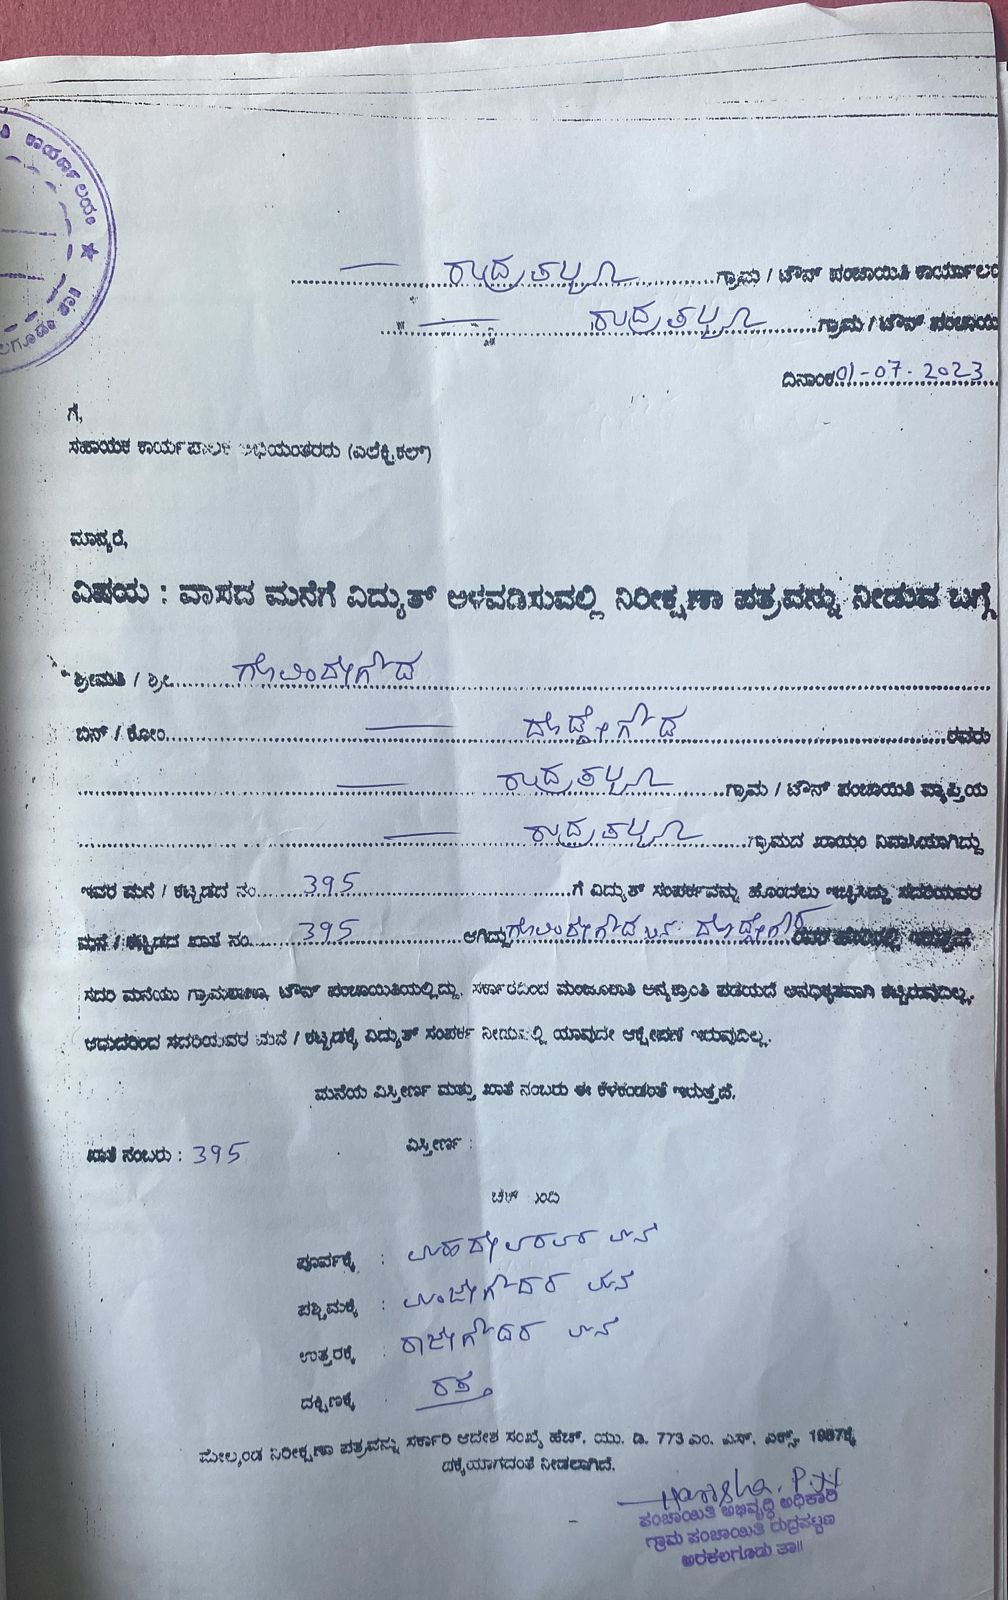 ಕಾರ್ಯಾಲಯ ★
ರುದ್ರಪಟ್ಟಣ ಗ್ರಾಮ / ಟೌನ್ ಪಂಚಾಯಿತಿ ಕಾರ್ಯಾಲಯ
ರುದ್ರಪಟ್ಟಣ ಗ್ರಾಮ / ಟೌನ್ ಪಂಚಾಯಿ
ದಿನಾಂಕ 01-07-2023
ಗೆ,
ಸಹಾಯಕ ಕಾರ್ಯಪಾಲಕ ಅಭಿಯಂತರರು (ಎಲೆಕ್ಟ್ರಿಕಲ್)
ಮಾನ್ಯರೆ,
ವಿಷಯ : ವಾಸದ ಮನೆಗೆ ವಿದ್ಯುತ್ ಅಳವಡಿಸುವಲ್ಲಿ ನಿರೀಕ್ಷಣಾ ಪತ್ರವನ್ನು ನೀಡುವ ಬಗ್ಗೆ
ಶ್ರೀಮತಿ / ಶ್ರೀ ಗೋವಿಂದೇಗೌಡ
ಬಿನ್ / ಕೋಂ ದೊಡ್ಡೇಗೌಡ ರವರು
ರುದ್ರಪಟ್ಟಣ ಗ್ರಾಮ / ಟೌನ್ ಪಂಚಾಯಿತಿ ವ್ಯಾಪ್ತಿಯ
ರುದ್ರಪಟ್ಟಣ ಗ್ರಾಮದ ಖಾಯಂ ನಿವಾಸಿಯಾಗಿದ್ದು
ಇವರ ಮನೆ / ಕಟ್ಟಡದ ನಂ. 395 ಗೆ ವಿದ್ಯುತ್ ಸಂಪರ್ಕವನ್ನು ಹೊಂದಲು ಇಚ್ಛಿಸಿದ್ದು ಸದರಿಯವರ
ಮನೆ / ಕಟ್ಟಡದ ಖಾತೆ ನಂ. 395 ಆಗಿದ್ದು ಗೋವಿಂದೇಗೌಡ ಬಿನ್ ದೊಡ್ಡೇಗೌಡ ರವರ ಹೆಸರಿನಲ್ಲಿ ಇರುತ್ತದೆ
ಸದರಿ ಮನೆಯು ಗ್ರಾಮಠಾಣಾ, ಟೌನ್ ಪಂಚಾಯಿತಿಯಲ್ಲಿದ್ದು, ಸರ್ಕಾರದಿಂದ ಮಂಜೂರಾತಿ ಅನ್ಯಕ್ರಾಂತಿ ಪಡೆಯದೆ ಅನಧಿಕೃತವಾಗಿ ಕಟ್ಟಿರುವುದಿಲ್ಲ.
ಆದುದರಿಂದ ಸದರಿಯವರ ಮನೆ / ಕಟ್ಟಡಕ್ಕೆ ವಿದ್ಯುತ್ ಸಂಪರ್ಕ ನೀಡುವಲ್ಲಿ ಯಾವುದೇ ಆಕ್ಷೇಪಣೆ ಇರುವುದಿಲ್ಲ.
ಮನೆಯ ವಿಸ್ತೀರ್ಣ ಮತ್ತು ಖಾತೆ ನಂಬರು ಈ ಕೆಳಕಂಡಂತೆ ಇರುತ್ತದೆ.
ಖಾತೆ ನಂಬರು : 395 ವಿಸ್ತೀರ್ಣ :
ಚಕ್ಕುಬಂದಿ
ಪೂರ್ವಕ್ಕೆ : ಮನೆ
ಪಶ್ಚಿಮಕ್ಕೆ : ಮಂಜೇಗೌಡರ ಮನೆ
ಉತ್ತರಕ್ಕೆ : ರಾಜೇಗೌಡರ ಮನೆ
ದಕ್ಷಿಣಕ್ಕೆ ರಸ್ತೆ
ಮೇಲ್ಕಂಡ ನಿರೀಕ್ಷಣಾ ಪತ್ರವನ್ನು ಸರ್ಕಾರಿ ಆದೇಶ ಸಂಖ್ಯೆ ಹೆಚ್. ಯು. ಡಿ. 773 ಎಂ. ಎನ್. ಎಕ್ಸ್. 1987ಕ್ಕೆ
ಧಕ್ಕೆಯಾಗದಂತೆ ನೀಡಲಾಗಿದೆ.
Harisha. P.N
ಪಂಚಾಯಿತಿ ಅಭಿವೃದ್ಧಿ ಅಧಿಕಾರಿ
ಗ್ರಾಮ ಪಂಚಾಯಿತಿ ರುದ್ರಪಟ್ಟಣ
ಅರಕಲಗೂಡು ತಾ॥